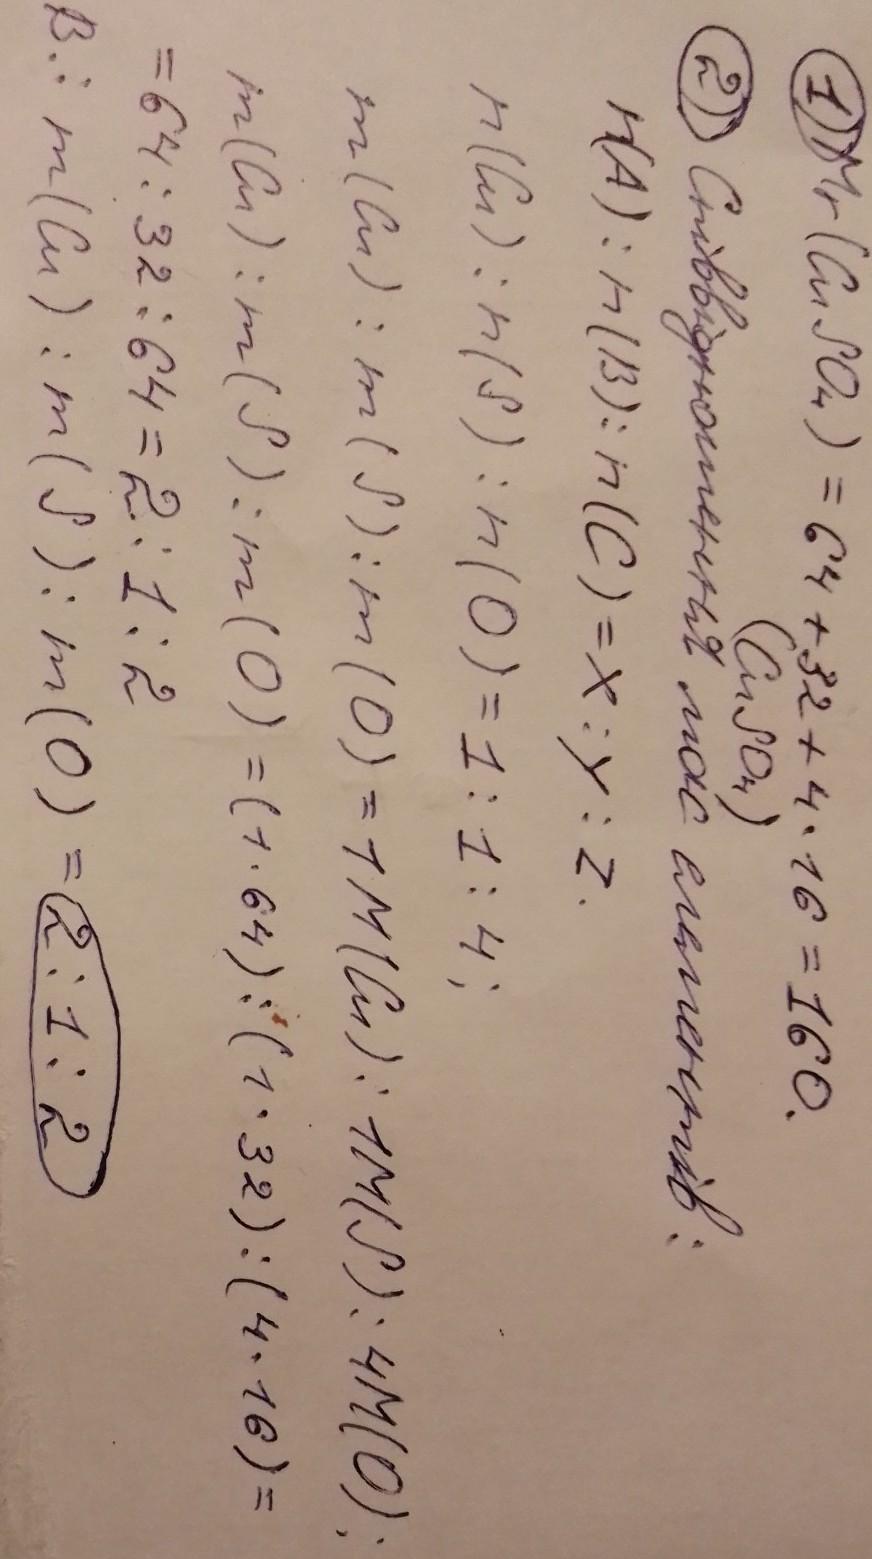 1) Mr(CuSO4) = 64 + 32 + 4 · 16 = 160.
(CuSO4)
2) Співвідношення мас елементів:
n(A) : n(B) : n(C) = x : y : z.
n(Cu) : n(S) : n(O) = 1 : 1 : 4;
m(Cu) : m(S) : m(O) = 1M(Cu) : 1M(S) : 4M(O);
m(Cu) : m(S) : m(O) = (1 · 64) : (1 · 32) : (4 · 16) =
= 64 : 32 : 64 = 2 : 1 : 2
В.: m(Cu) : m(S) : m(O) = 2 : 1 : 2